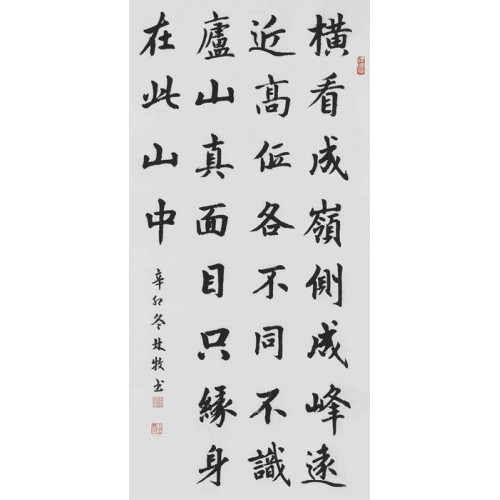 橫看成嶺側成峰遠
近高低各不同不識
廬山真面目只緣身
在此山中
辛卯冬林牧书